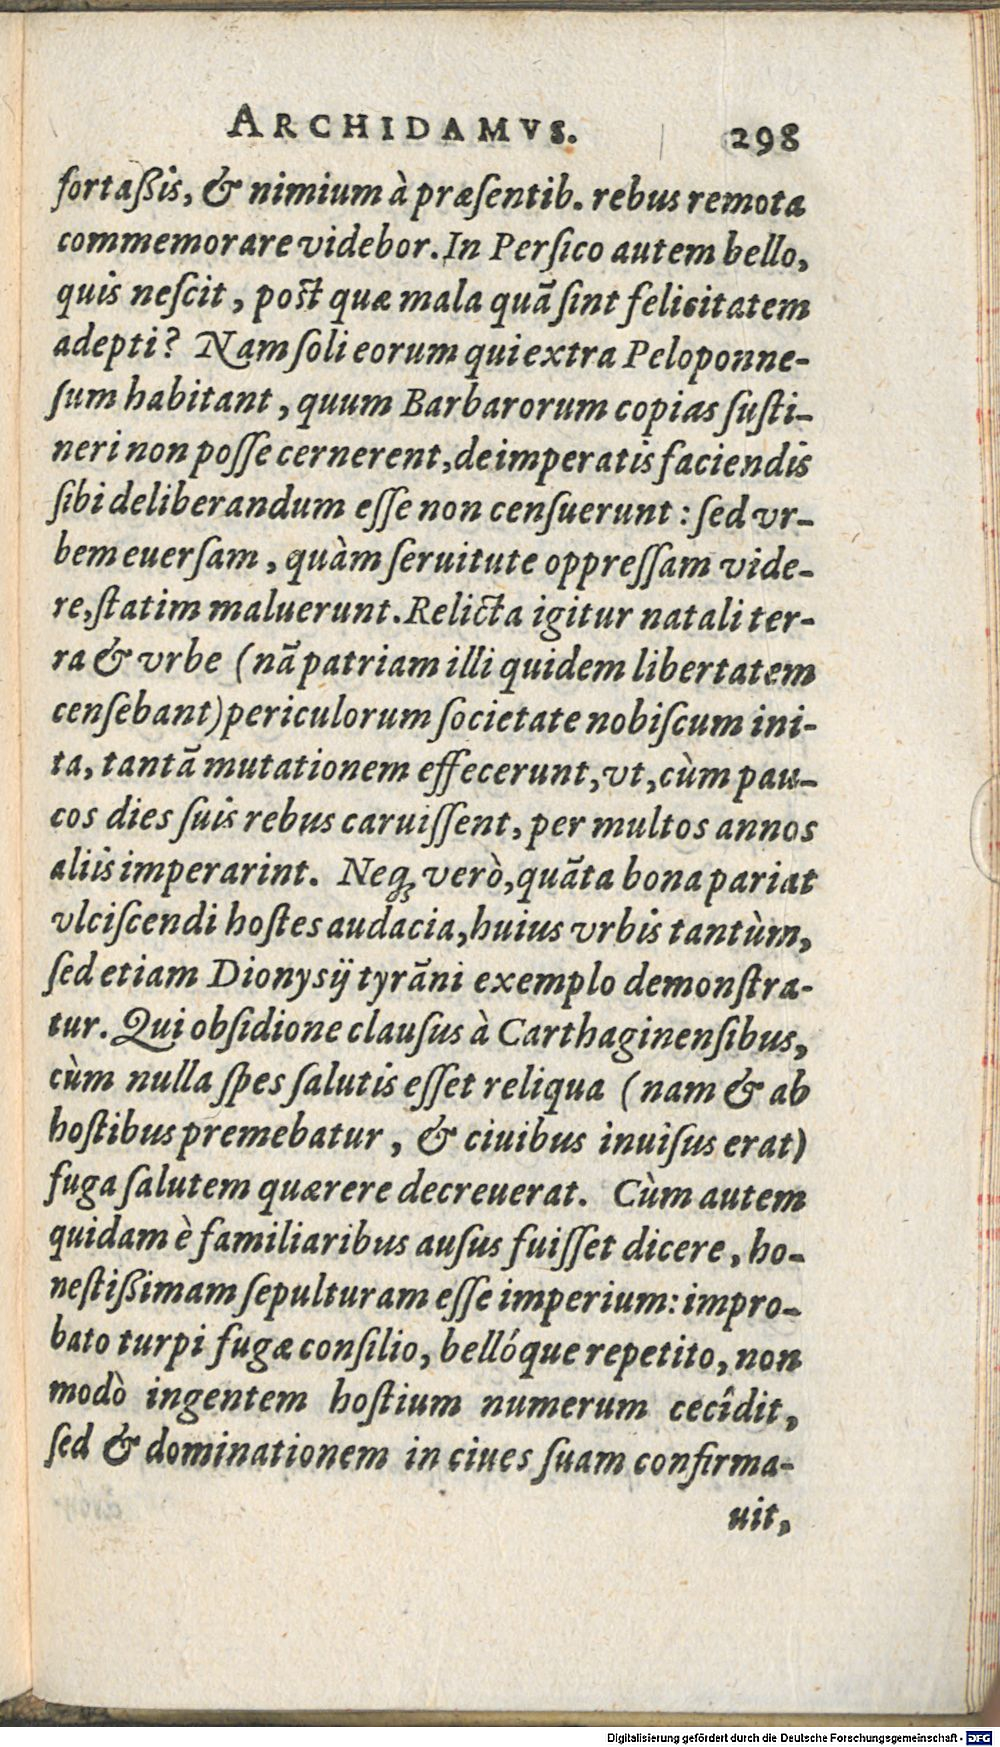 ARCHIDAMVS. 298
fortaßis, & nimium à præſentib. rebus remota
commemorare videbor. In Perſico autem bello,
quis neſcit, poſt quæ mala quā ſint felicitatem
adepti? Nam ſoli eorum qui extra Peloponne-
ſum habitant, quum Barbarorum copias ſuſti-
neri non poſſe cernerent, de imperatis faciendis
ſibi deliberandum eſſe non cenſuerunt: ſed vr-
bem euerſam, quàm ſeruitute oppreſſam vide-
re, ſtatim maluerunt. Relicta igitur natali ter-
ra & vrbe (nā patriam illi quidem libertatem
cenſebant) periculorum ſocietate nobiſcum ini-
ta, tantā mutationem effecerunt, vt, cùm pau-
cos dies ſuis rebus caruiſſent, per multos annos
aliis imperarint. Neqꝫ verò, quāta bona pariat
vlciſcendi hoſtes audacia, huius vrbis tantùm,
ſed etiam Dionyſij tyrāni exemplo demonſtra-
tur. Qui obſidione clauſus à Carthaginenſibus,
cùm nulla ſpes ſalutis eſſet reliqua (nam & ab
hoſtibus premebatur, & ciuibus inuiſus erat)
fuga ſalutem quærere decreuerat. Cùm autem
quidam è familiaribus auſus fuiſſet dicere, ho-
neſtißimam ſepulturam eſſe imperium: impro-
bato turpi fugæ conſilio, bellóque repetito, non
modò ingentem hoſtium numerum cecîdit,
ſed & dominationem in ciues ſuam confirma-
uit,
Digitalisierung gefördert durch die Deutsche Forschungsgemeinschaft - DFG